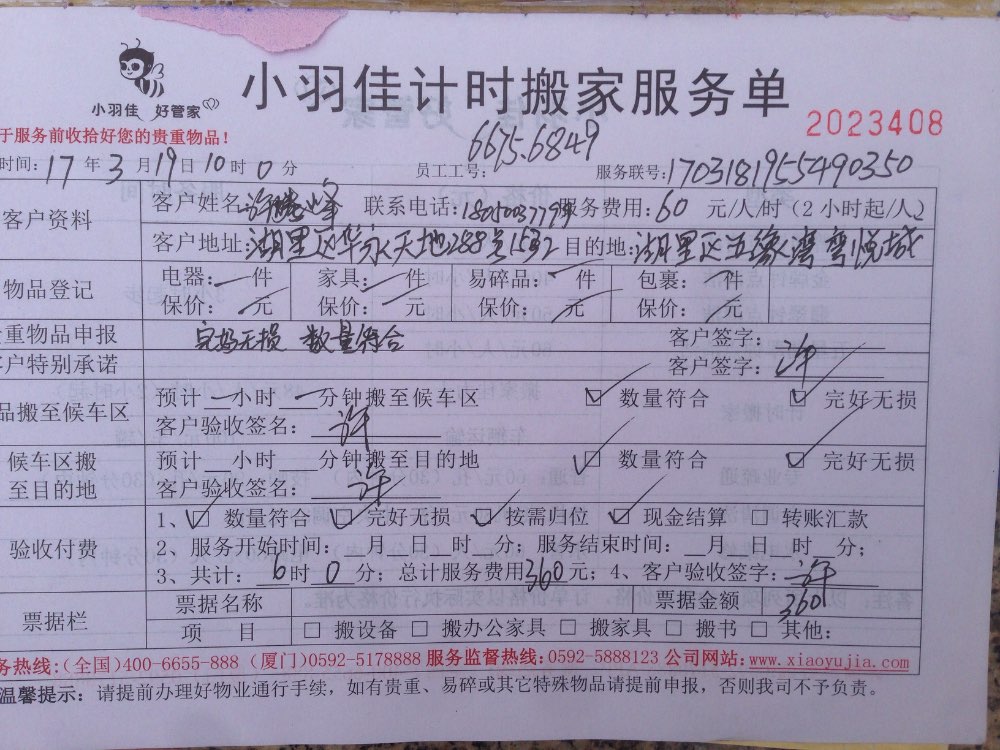 小羽佳 好管家
小羽佳计时搬家服务单
2023408
于服务前收拾好您的贵重物品!
6675.6849
时间:17年3月19日10时0分 员工工号: 服务联号:1703181955490350
客户资料 客户姓名: 联系电话: 服务费用:60元/人/时(2小时起/人)
客户地址:湖里区华永天地288号 目的地:湖里区五缘湾湾悦城
物品登记 电器: 件 家具: 件 易碎品: 件 包裹: 件
保价: 元 保价: 元 保价: 元 保价: 元
贵重物品申报 完好无损 数量符合 客户签字:
客户特别承诺 客户签字:许
品搬至候车区 预计 小时 分钟搬至候车区 ☑ 数量符合 ☑ 完好无损
客户验收签名: 许
候车区搬至目的地 预计 小时 分钟搬至目的地 ☑ 数量符合 ☑ 完好无损
客户验收签名: 许
验收付费 1、☑ 数量符合 ☑ 完好无损 ☑ 按需归位 ☑ 现金结算 □ 转账汇款
2、服务开始时间: 月 日 时 分;服务结束时间: 月 日 时 分;
3、共计:6时0分;总计服务费用360元;4、客户验收签字:许
票据栏 票据名称 票据金额 360
项 目 □ 搬设备 □ 搬办公家具 □ 搬家具 □ 搬书 □ 其他:
务热线:(全国)400-6655-888 (厦门)0592-5178888 服务监督热线:0592-5888123 公司网站:www.xiaoyujia.com
温馨提示:请提前办理好物业通行手续,如有贵重、易碎或其它特殊物品请提前申报,否则我司不予负责。